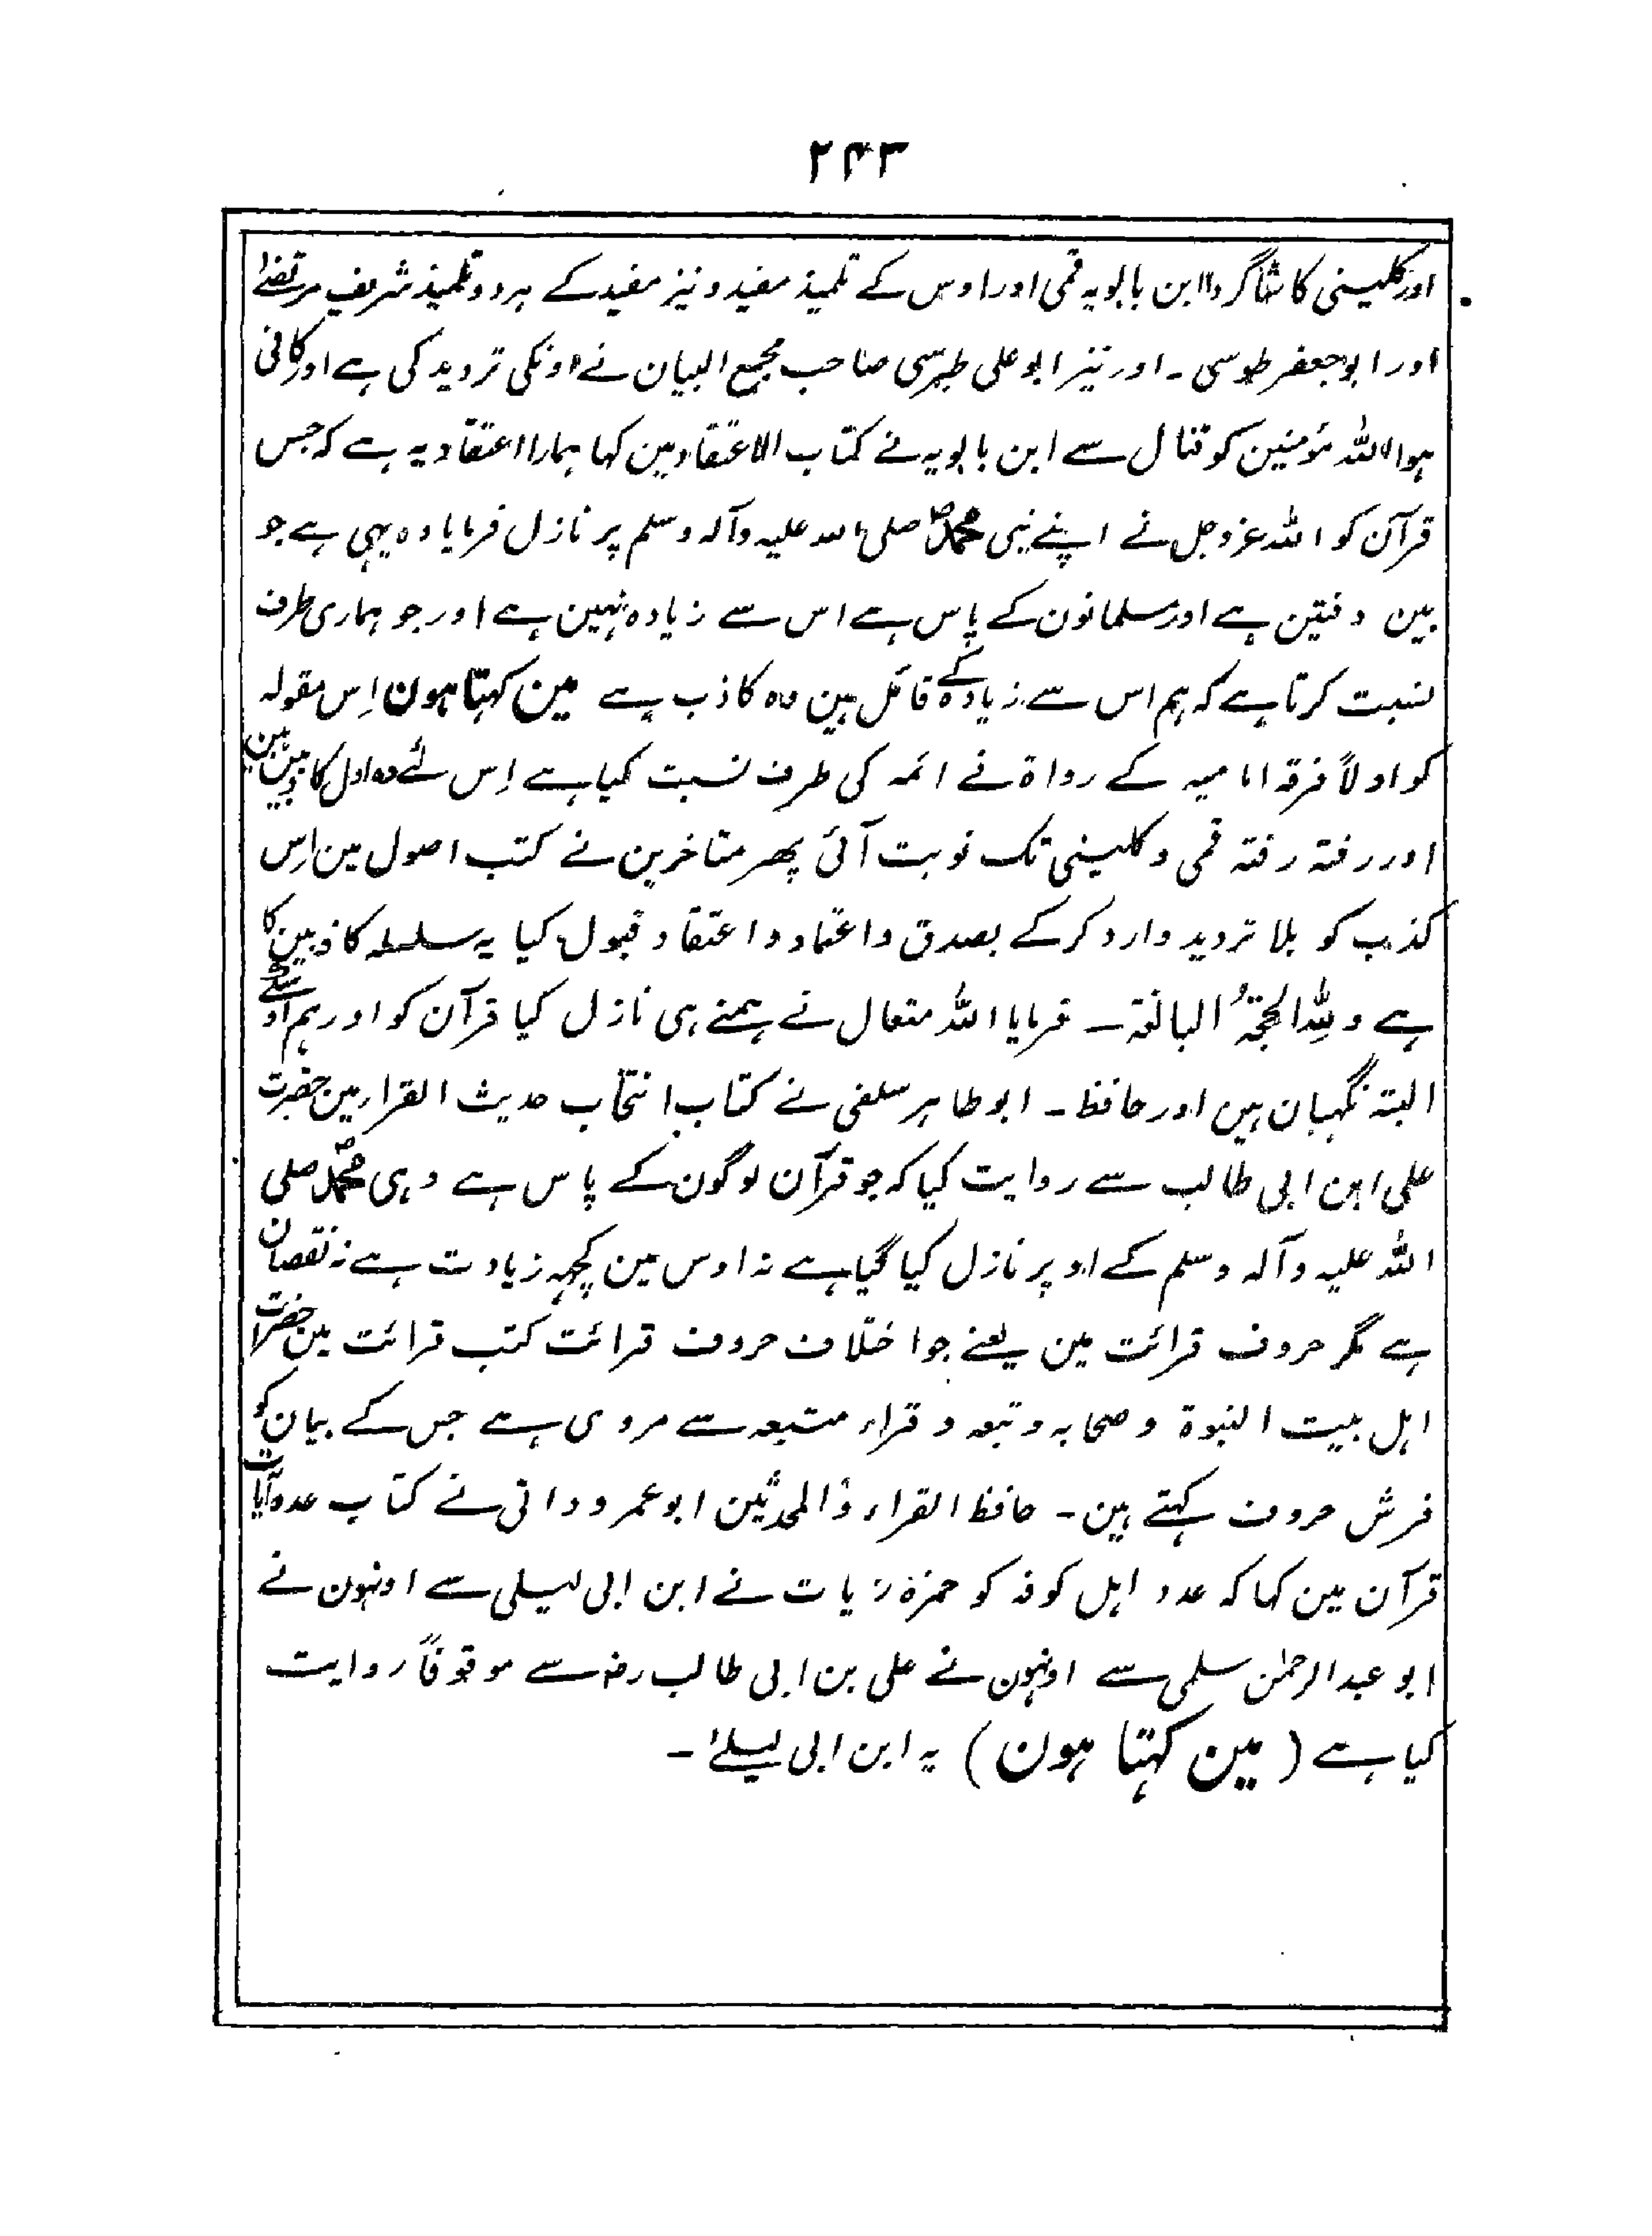 ۲۴۳
اور کلینی کا شاگرد ابن بابویہ قمی اور اوس کے تلمیذ مفید و نیز مفید کے ہر دو تلمیذ شریف مرتضےٰ
اور ابو جعفر طوسی ۔ اور نیز ابو علی طبرسی صاحب مجمع البیان نے اونکی تردید کی ہے اور کافی
ہوا اللہ مؤمنین کو قتال سے ابن بابویہ نے کتاب الاعتقاد مین کہا ہمارا اعتقاد یہ ہے کہ جس
قرآن کو اللہ عزوجل نے اپنے نبی محمدؐ صلی اللہ علیہ وآلہ وسلم پر نازل فرمایا وہ یہی ہے جو
بین دفتین ہے اور مسلمانون کے پاس ہے اس سے زیادہ نہین ہے اور جو ہماری طرف
نسبت کرتا ہے کہ ہم اس سے زیادہ کے قائل ہین وہ کاذب ہے مین کہتا ہون اِس مقولہ
کو اولاً فرقہ امامیہ کے رواۃ نے ائمہ کی طرف نسبت کیا ہے اِس لئے وہ اول کاذبین ہین
اور رفتہ رفتہ قمی و کلینی تک نوبت آئی پھر متاخرین نے کتب اصول مین اِس
کذب کو بلا تردید وارد کرکے بصدق واعتماد واعتقاد قبول کیا یہ سلسلہ کاذبین کا
ہے وللہِ الحجۃُ البالغۃ ۔ فرمایا اللہ متعال نے ہمنے ہی نازل کیا قرآن کو اور ہم اوسکے
البتہ نگہبان ہین اور حافظ ۔ ابو طاہر سلفی نے کتاب انتخاب حدیث القراء مین حضرت
علی ابن ابی طالب سے روایت کیا کہ جو قرآن لوگون کے پاس ہے وہی محمدؐ صلی
اللہ علیہ وآلہ وسلم کے اوپر نازل کیا گیا ہے نہ اوس مین کچہہ زیادت ہے نہ نقصان
ہے مگر حروف قرائت مین یعنے جو اختلاف حروف قرائت کتب قرائت مین حضرات
اہل بیت النبوۃ و صحابہ و تبعہ و قراء متبعہ سے مروی ہے جس کے بیان کو
فرش حروف کہتے ہین ۔ حافظ القراء والمحدثین ابو عمرو دانی نے کتاب عدد آیات
قرآن مین کہا کہ عدد اہل کوفہ کو حمزہ زیات نے ابن ابی لیلی سے اونہون نے
ابو عبدالرحمٰن سلمی سے اونہون نے علی بن ابی طالب رضہ سے موقوفاً روایت
کیا ہے (مین کہتا ہون) یہ ابن ابی لیلےٰ ۔